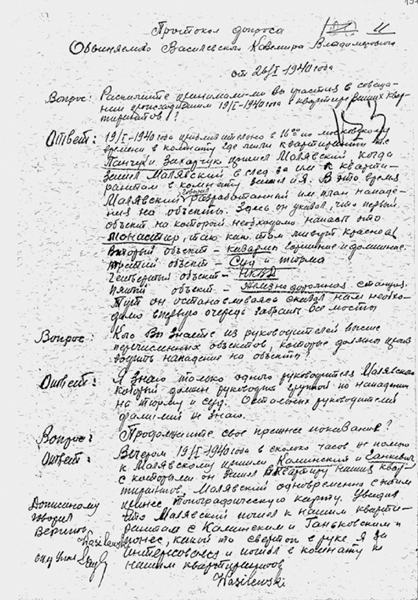 Протокол допроса 11
Обвиняемого Василевского Казимира Владимировича
от 26/I-1940 года
Вопрос: Расскажите принимали-ли Вы участия в совеща-
нии происходившим 19/I-1940 года в квартире Ваших квар-
тирантов?
153
Ответ: 19/I-1940 года приблизительно в 16 по московскому
времени в комнату где жили квартиранты
Панчук и Захарчук пришел Малявский когда
зашел Малявский в след за им к кварти-
рантам в комнату зашел и я. В это время
Малявский разработанный им план нападе-
ния на объекты. Здесь он указал, что первый
объект на который необходимо напасть это
монастир, так как там живут красноа
Второй объект -
Третий объект - Суд и тюрма
Четвертий объект - НКВД
Пятий объект - Железнодорожная станция.
Тут он остановившись сказал нам необхо-
димо в первую очередь все мосты
Вопрос: Кого Вы знаете из руководителей више
перечисленних объектов, которые должно произ
водить нападение на объекты?
Ответ: Я знаю только одного руководителя Малявского
который должен руководить групой по нападению
на тюрму и суд. Остальних руководителей
фамилий не знаю.
Вопрос: Продолжите свое прежнее показание?
Ответ: Вечером 19/I-1940 года в сколько часов не помню
к Малявскому пришли Калинский и
с которыми он зашел в квартиру наших квар-
тирантов, Малявский одновременно с ними
принес топографическую карту. Увидив
что Малявский пошел к нашим кварти-
рантам с Калинским и Ганьковским и
понес, какой то сверток в руке я за
интерсовался и пошел в комнату к
нашим квартирантов
Дописаному
Верно
Wasilewski
Wasilewski